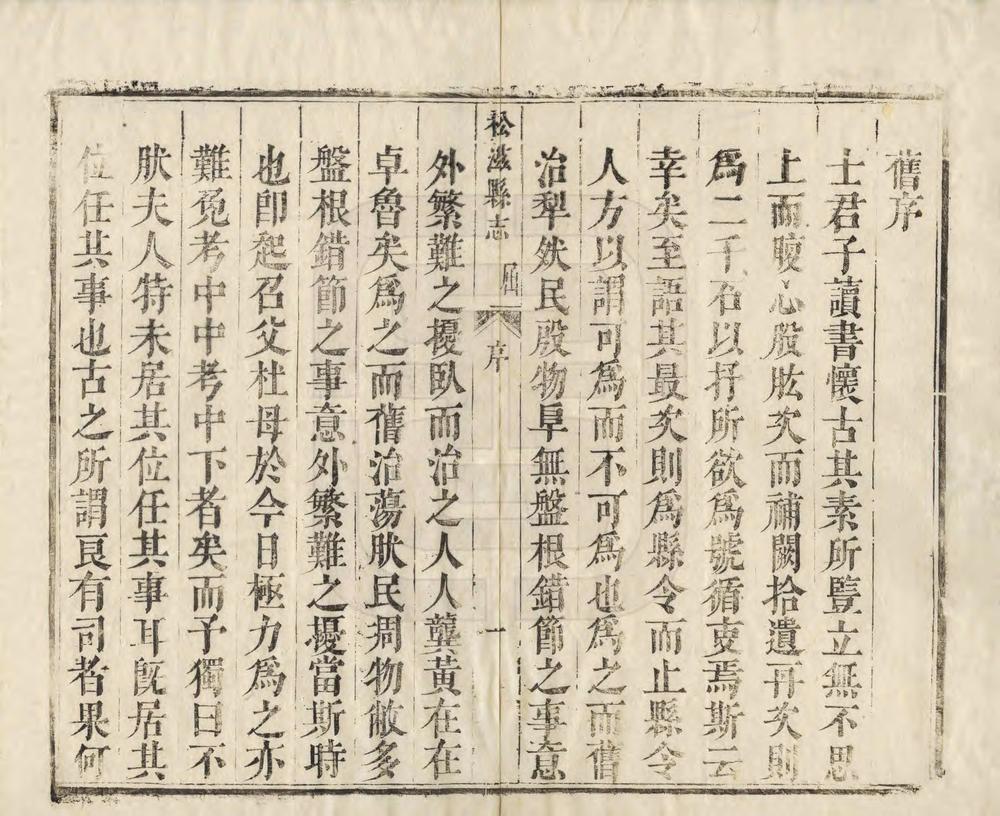 舊序
士君子讀書懷古其素所豎立無不思
上而腹心股肱次而補闕拾遺再次則
爲二千石以抒所欲爲號循吏焉斯云
幸矣至語其最次則爲縣令而止縣令
人方以謂可爲而不可爲也爲之而舊
治犁然民殷物阜無盤根錯節之事意
松滋縣志 序 一
外繁難之擾臥而治之人人龔黃在在
卓魯矣爲之而舊治蕩肰民凋物敝多
盤根錯節之事意外繁難之擾當斯時
也卽起召父杜母於今日極力爲之亦
難免考中中考中下者矣而予獨曰不
肰夫人特未居其位任其事耳旣居其
位任其事也古之所謂良有司者果何